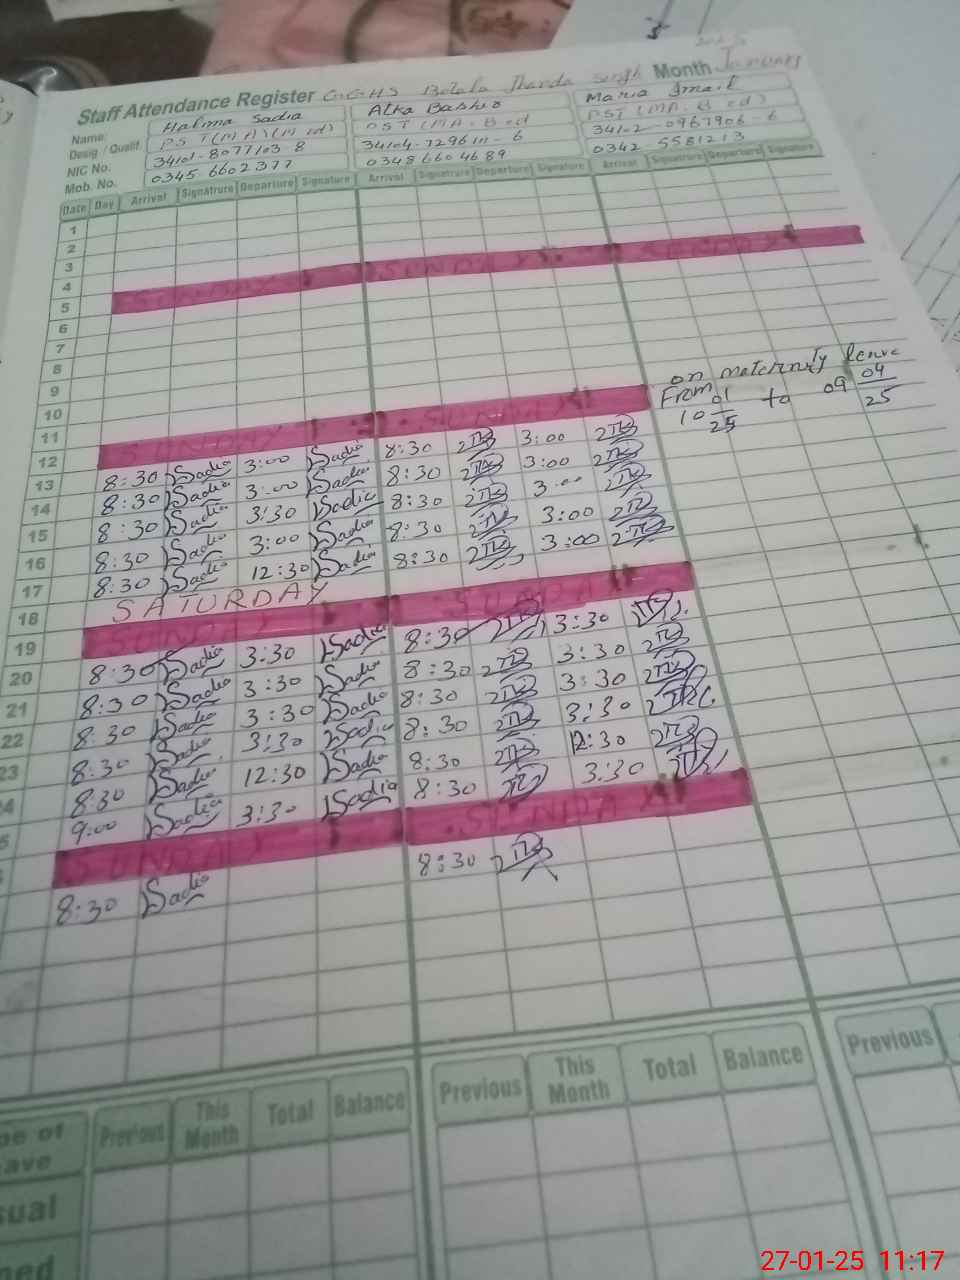 2025
Staff Attendance Register G.G.H.S Botala Jhanda Singh Month January
Name: Halima Sadia Atka Bashir Maria Ismail
Desig / Qualif. PST(MA)(M ed) PST (MA. B ed PST (MA. B ed)
NIC No. 34101-8077103 8 34104-729611-6 34102-0967906-6
Mob. No. 0345 6602377 0348660 4689 0342 5581213
Date Day Arrival Signatrure Departure Signature Arrival Signatrure Departure Signature Arrival Signatrure Departure Signature
1
2
3
4
5 SUNDAY SUNDAY SUNDAY
6
7
8
9
10 on maternity leave
From 10 01/25 to 09 04/25
11
12 SUNDAY SUNDAY
13 8:30 Sadia 3:00 Sadia 8:30 3:00
14 8:30 Sadia 3:00 Sadia 8:30 3:00
15 8:30 Sadia 3:30 Sadia 8:30 3:00
16 8:30 Sadia 3:00 Sadia 8:30 3:00
17 8:30 Sadia 12:30 Sadia 8:30 3:00
18 SATURDAY
19 SUNDAY SUNDAY
20 8:30 Sadia 3:30 Sadia 8:30 3:30
21 8:30 Sadia 3:30 Sadia 8:30 3:30
22 8:30 Sadia 3:30 Sadia 8:30 3:30
23 8:30 Sadia 3:30 Sadia 8:30 3:30
24 8:30 Sadia 12:30 Sadia 8:30 12:30
5 9:00 Sadia 3:30 Sadia 8:30 3:30
SUNDAY SUNDAY
8:30 Sadia 8:30
pe of Previous This Month Total Balance Previous This Month Total Balance Previous
ave
sual
ned
27-01-25 11:17